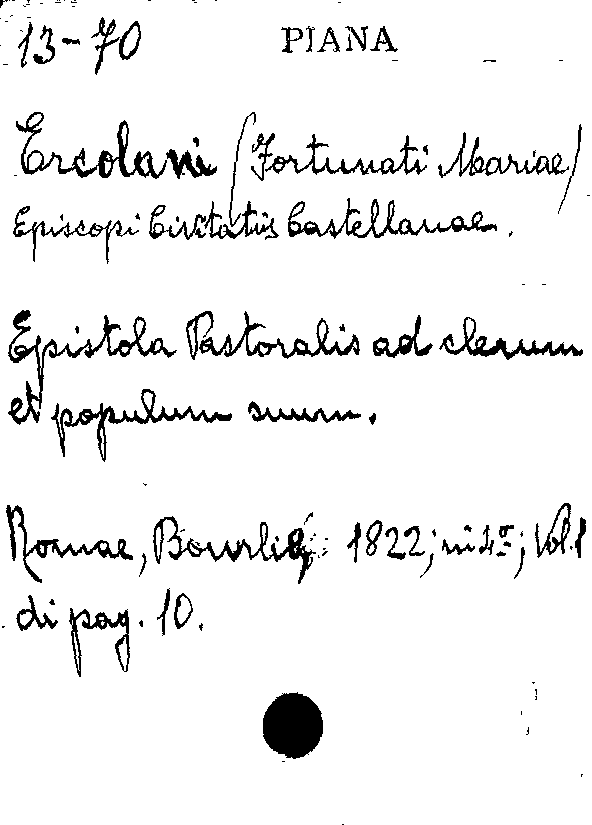 13-70 PIANA
Ercolani (Fortunati Mariae)
Episcopi Civitatis Castellanae.
Epistola Pastoralis ad clerum
et populum suum.
Romae, Bourliè, 1822; in 4º; Vol. 1
di pag. 10.